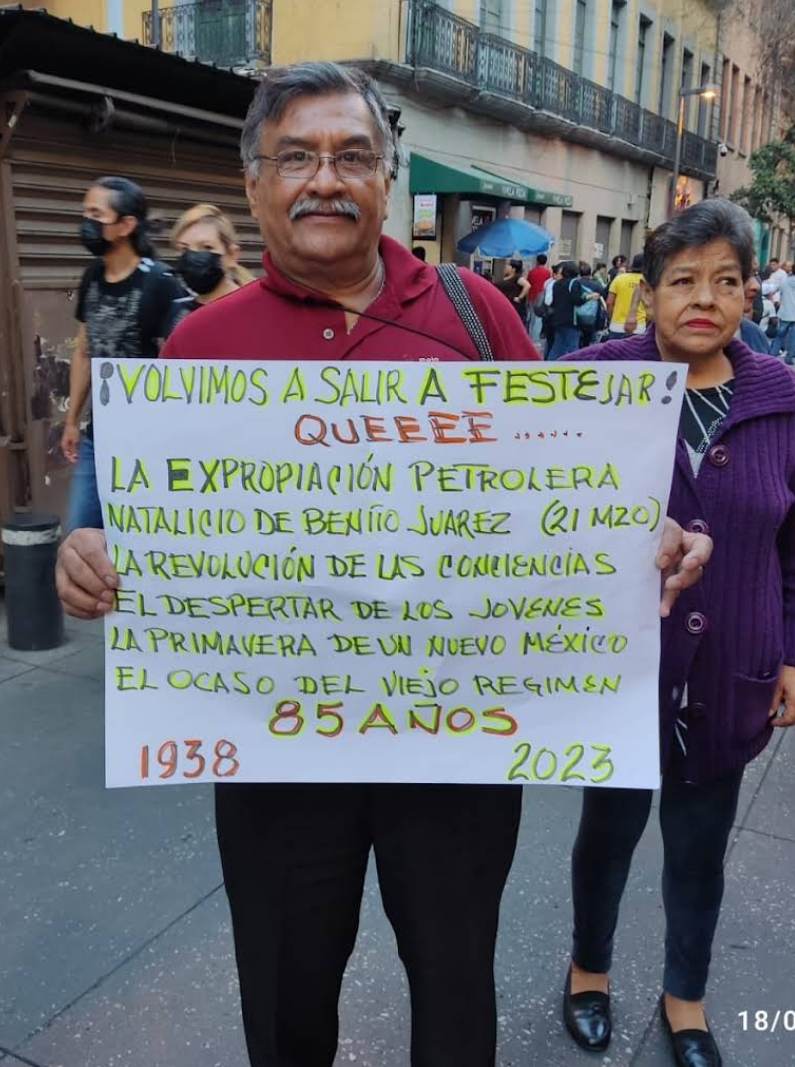 ¡VOLVIMOS A SALIR A FESTEJAR!
QUEEEE ......
LA EXPROPIACIÓN PETROLERA
NATALICIO DE BENITO JUAREZ (21 MZO)
LA REVOLUCIÓN DE LAS CONCIENCIAS
EL DESPERTAR DE LOS JOVENES
LA PRIMAVERA DE UN NUEVO MÉXICO
EL OCASO DEL VIEJO REGIMEN
85 AÑOS
1938 2023
18/0